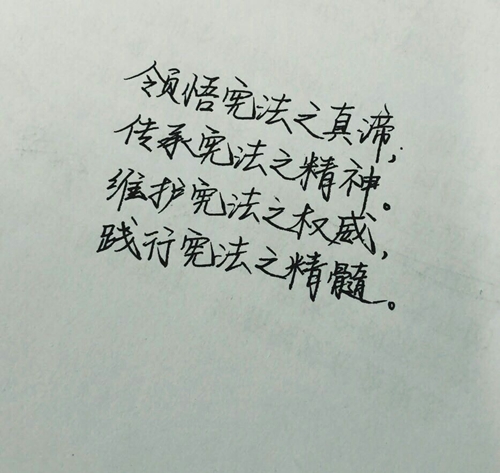 领悟宪法之真谛,
传承宪法之精神。
维护宪法之权威,
践行宪法之精髓。